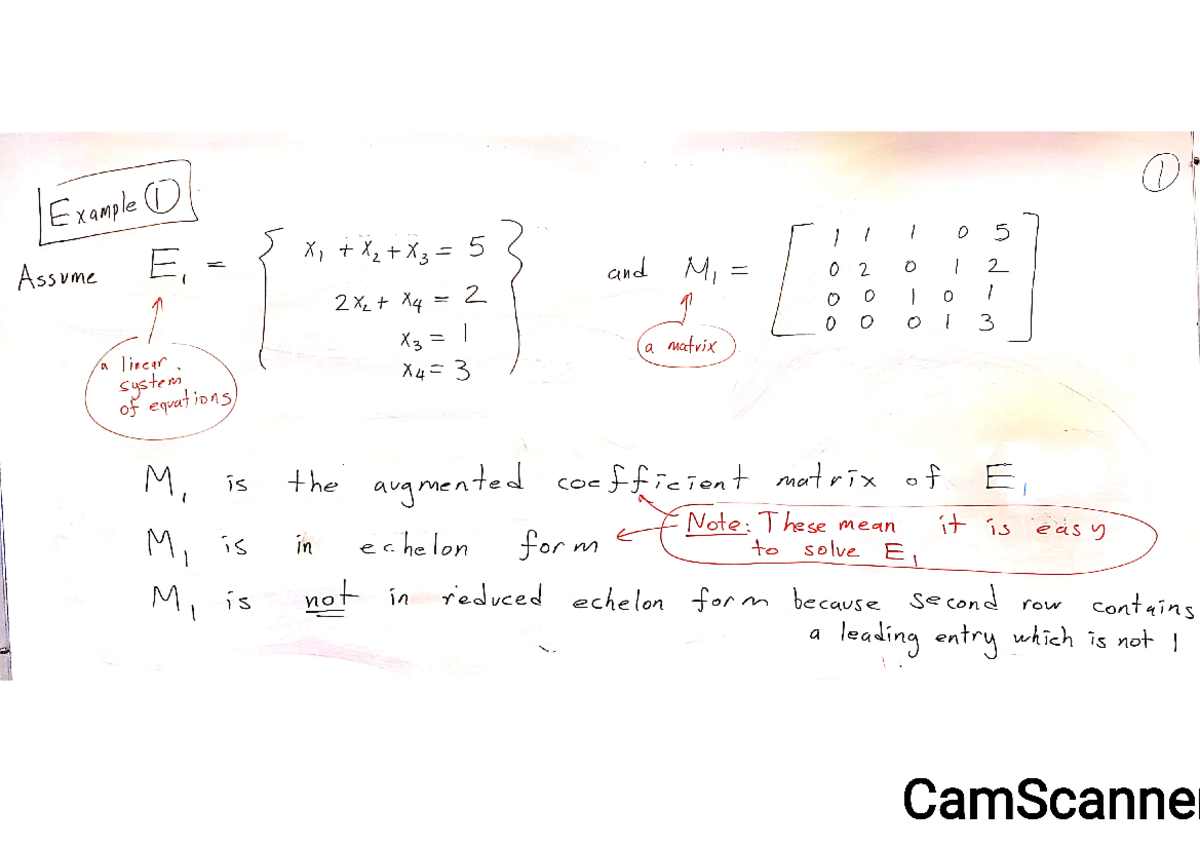 ①
Example ①
Assume E₁ = { x₁ + x₂ + x₃ = 5
2x₂ + x₄ = 2
x₃ = 1
x₄ = 3 }
and M₁ = [ 1 1 1 0 5
0 2 0 1 2
0 0 1 0 1
0 0 0 1 3 ]
a linear
system
of equations
a matrix
M₁ is the augmented coefficient matrix of E₁
Note: These mean it is easy
to solve E₁
M₁ is in echelon form
M₁ is not in reduced echelon form because second row contains
a leading entry which is not 1
CamScanner